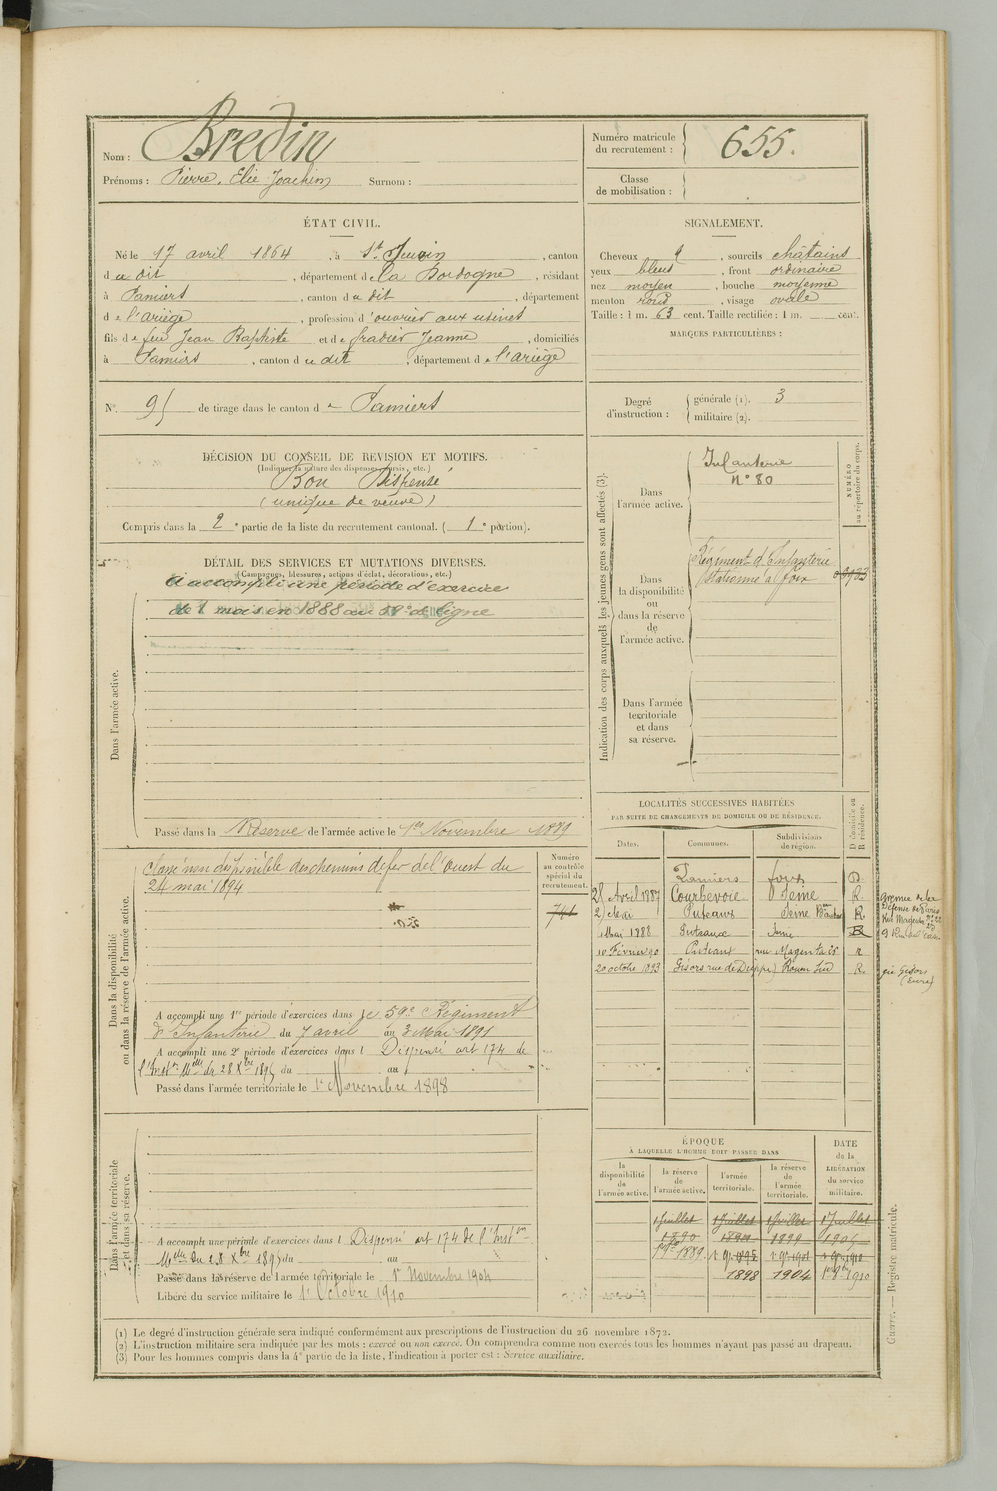 Nom : Bredin
Prénoms : Pierre, Elie Joachim Surnom :
Numéro matricule du recrutement : 655.
Classe de mobilisation :
ÉTAT CIVIL.
Né le 17 avril 1864, à St, canton
du dit, département de la Dordogne, résidant
à Pamiers, canton du dit, département
de l'ariège, profession d'ouvrier aux usines
fils de feu Jean Baptiste et de Jeanne, domiciliés
à Pamiers, canton du dit, département de l'ariège
N° de tirage dans le canton de Pamiers
SIGNALEMENT.
Cheveux, sourcils châtains
yeux bleus, front ordinaire
nez moyen, bouche moyenne
menton rond, visage ovale
Taille : 1 m. 63 cent. Taille rectifiée : 1 m. cent.
MARQUES PARTICULIÈRES :
Degré d'instruction : générale (1). 3
militaire (2).
DÉCISION DU CONSEIL DE REVISION ET MOTIFS.
(Indiquer la nature des dispenses, sursis, etc.)
Bon Dispensé
(unique de veuve)
Compris dans la 2e partie de la liste du recrutement cantonal. (1e portion).
DÉTAIL DES SERVICES ET MUTATIONS DIVERSES.
(Campagnes, blessures, actions d'éclat, décorations, etc.)
Dans l'armée active.
A accompli une période d'exercice
de 1 mois en 1888 au 59e de ligne
Passé dans la Réserve de l'armée active le 1er Novembre 1889
Indication des corps auxquels les jeunes gens sont affectés (3).
NUMÉRO au répertoire du corps.
Dans l'armée active.
Infanterie
n° 80
Dans la disponibilité ou dans la réserve de l'armée active.
Régiment d'Infanterie
stationné à Foix
Dans l'armée territoriale et dans sa réserve.
Dans la disponibilité ou dans la réserve de l'armée active.
Classé non disponible des chemins de fer de l'Ouest du
24 mai 1894
Numéro au contrôle spécial du recrutement.
741
A accompli une 1re période d'exercices dans le 59e Régiment
d'Infanterie du 7 avril au 3 Mai 1891
A accompli une 2e période d'exercices dans l Dispensé art 174 de
l'Inston Melle du 28 Xbre 1895 du au
Passé dans l'armée territoriale le 1er Novembre 1898
LOCALITÉS SUCCESSIVES HABITÉES
PAR SUITE DE CHANGEMENTS DE DOMICILE OU DE RÉSIDENCE.
Dates. Communes. Subdivision de région. D domicile ou R résidence.
Pamiers Foix D
28 Avril 1887 Courbevoie Seine R.
Puteaux Seine R.
1 Mai 1888 Puteaux Seine R
10 Février 90 Puteaux rue Magenta R
20 octobre 1893 Gisors rue de Dieppe Rouen Sud R.
Gisors
(Eure)
Dans l'armée territoriale et dans sa réserve.
A accompli une période d'exercices dans l Dispensé art 174 de l'Inston
Melle du 28 Xbre 1895 du au
Passé dans la réserve de l'armée territoriale le 1er Novembre 1904
Libéré du service militaire le 1er Octobre 1910
ÉPOQUE
À LAQUELLE L'HOMME DOIT PASSER DANS
DATE de la LIBÉRATION du service militaire.
la disponibilité de l'armée active. la réserve de l'armée active. l'armée territoriale. la réserve de l'armée territoriale.
1 Juillet 1 Juillet 1 Juillet 1 Juillet
1890 1899
1889.
1898 1904 1910
(1) Le degré d'instruction générale sera indiqué conformément aux prescriptions de l'instruction du 26 novembre 1872.
(2) L'instruction militaire sera indiquée par les mots : exercé ou non exercé. On comprendra comme non exercés tous les hommes n'ayant pas passé au drapeau.
(3) Pour les hommes compris dans la 4e partie de la liste, l'indication à porter est : Service auxiliaire.
Guerre. — Registre matricule.